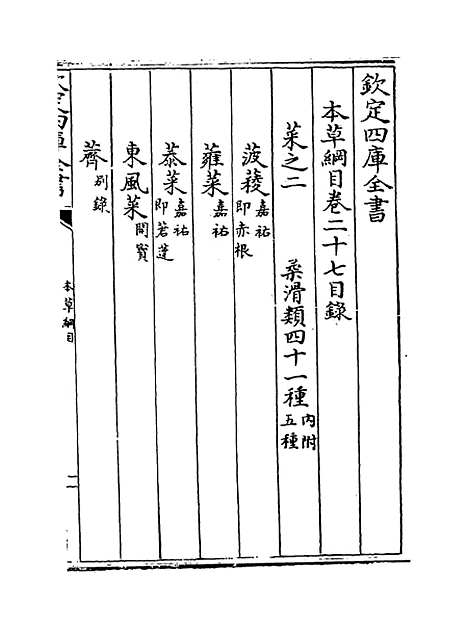 欽定四庫全書
本草綱目卷二十七目錄
菜之二 葇滑類四十一種內附五種
菠薐嘉祐即赤根
蕹菜嘉祐
菾菜嘉祐即莙薘
東風菜開寶
薺別錄
本草綱目